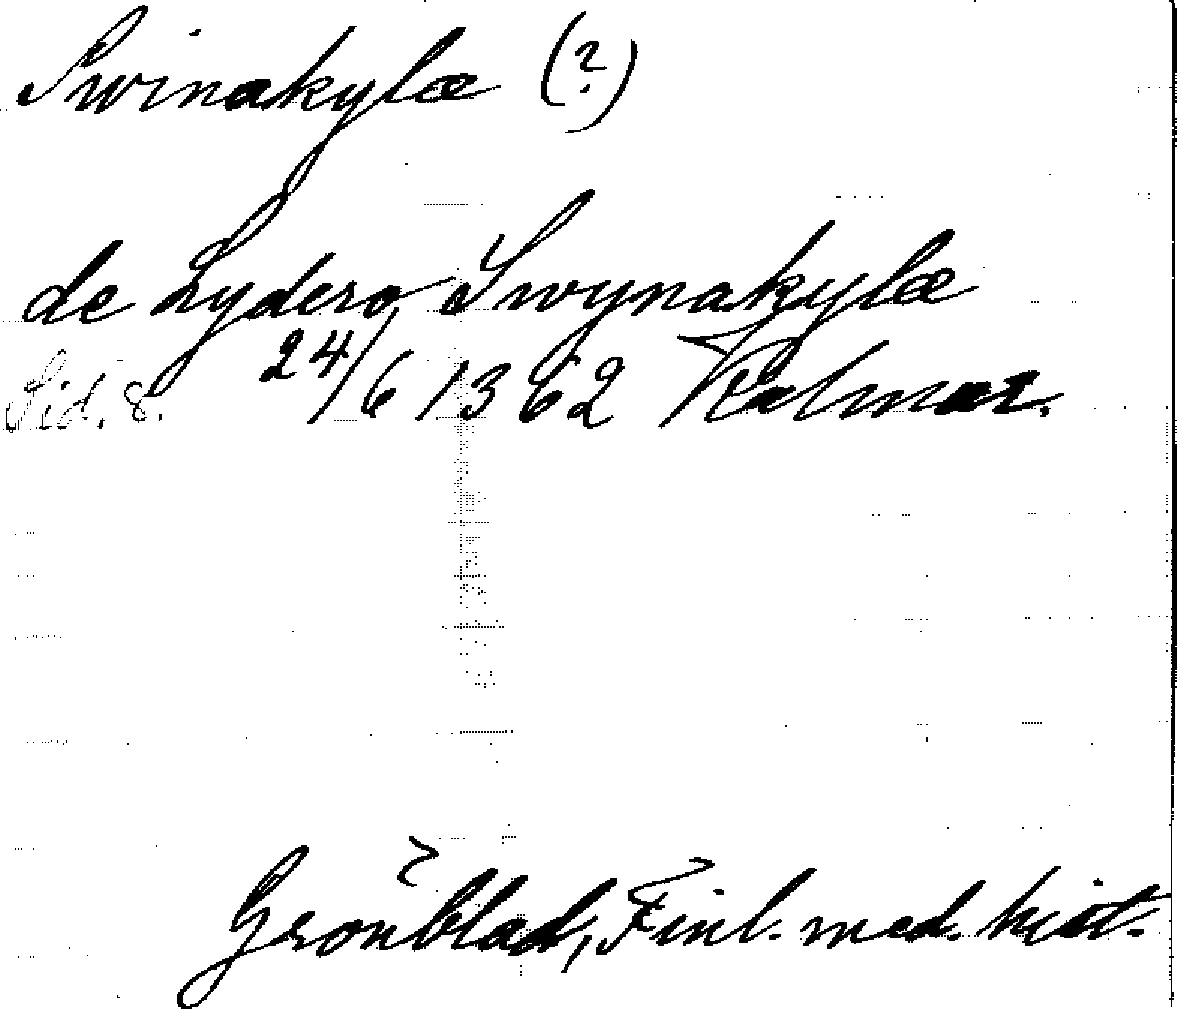 Swinakylæ (?)
de Lydero Swynakylæ
Sid. 8. 24/6 1362 Kalmar.
Grönblad, Finl. med. hist.